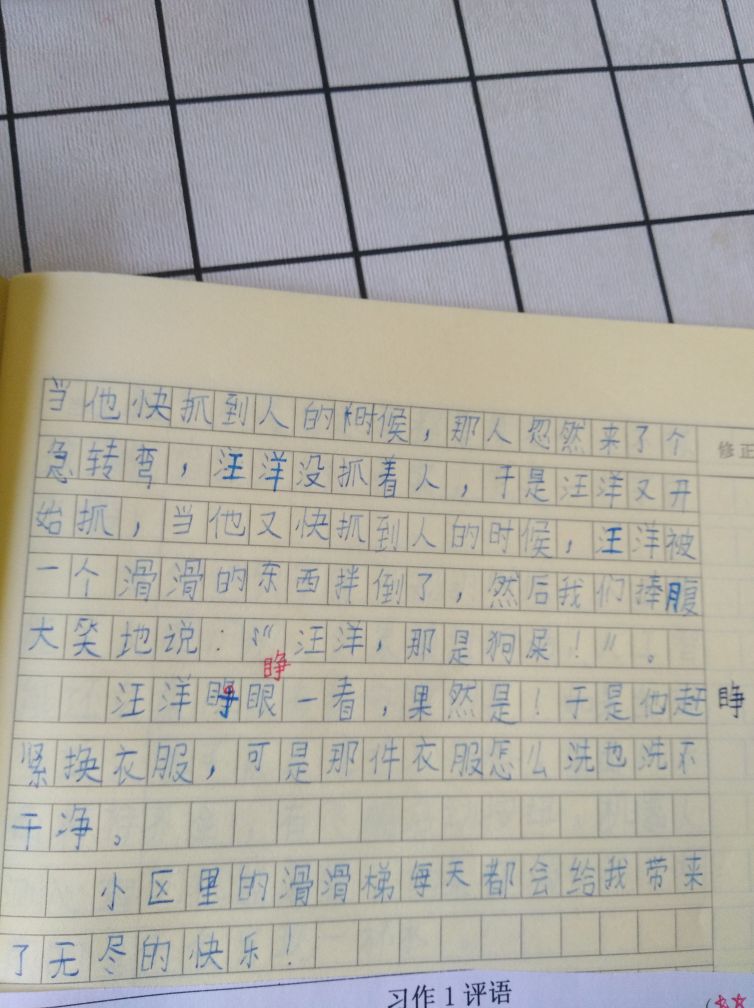 当他快抓到人的时候，那人忽然来了个
修正
急转弯，汪洋没抓着人，于是汪洋又开
始抓，当他又快抓到人的时候，汪洋被
一个滑滑的东西拌倒了，然后我们捧腹
大笑地说：“汪洋，那是狗屎！”。
睁
汪洋睁眼一看，果然是！于是他赶
睁
紧换衣服，可是那件衣服怎么洗也洗不
干净。
小区里的滑滑梯每天都会给我带来
了无尽的快乐！
习作1评语